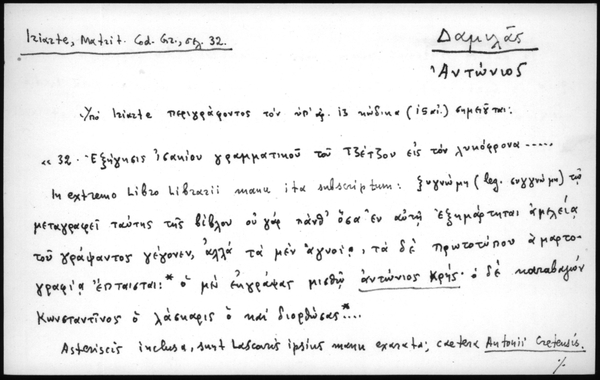 Iriarte, Matrit. Cod. Gr., σελ. 32.
Δαμιλᾶς
Ἀντώνιος
Ὑπὸ Iriarte περιγράφοντος τὸν ὑπ' ἀρ. 13 κώδικα (15 αἰ.) σημειοῦται:
« 32. Ἐξήγησις Ἰσακίου γραμματικοῦ τοῦ Τζέτζου εἰς τὸν λυκόφρονα .....
In extremo Libro Librarii manu ita subscriptum: ξυγνώμη (leg. συγγνώμη) τῷ
μεταγραφεῖ ταύτης τῆς βίβλου οὐ γάρ πάνθ' ὅσα ἐν αὐτῇ ἐξημάρτηται ἀμελείᾳ
τοῦ γράψαντος γέγονεν, ἀλλά τὰ μὲν ἀγνοίᾳ, τὰ δὲ πρωτοτύπου ἁμαρτο-
γραφίᾳ ἔπταισται: * ὁ μὲν ἐκγράψας μισθῷ ἀντώνιος Κρής· ὁ δὲ καταβαλών
Κωνσταντῖνος ὁ λάσκαρις ὁ καί διορθώσας *...
Asteriscis inclusa, sunt Lascaris ipsius manu exarata; caetera Antonii Cretensis.
·/.